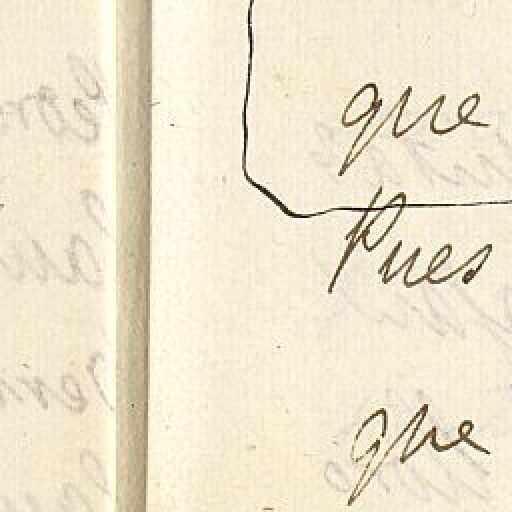 que
Pues
que